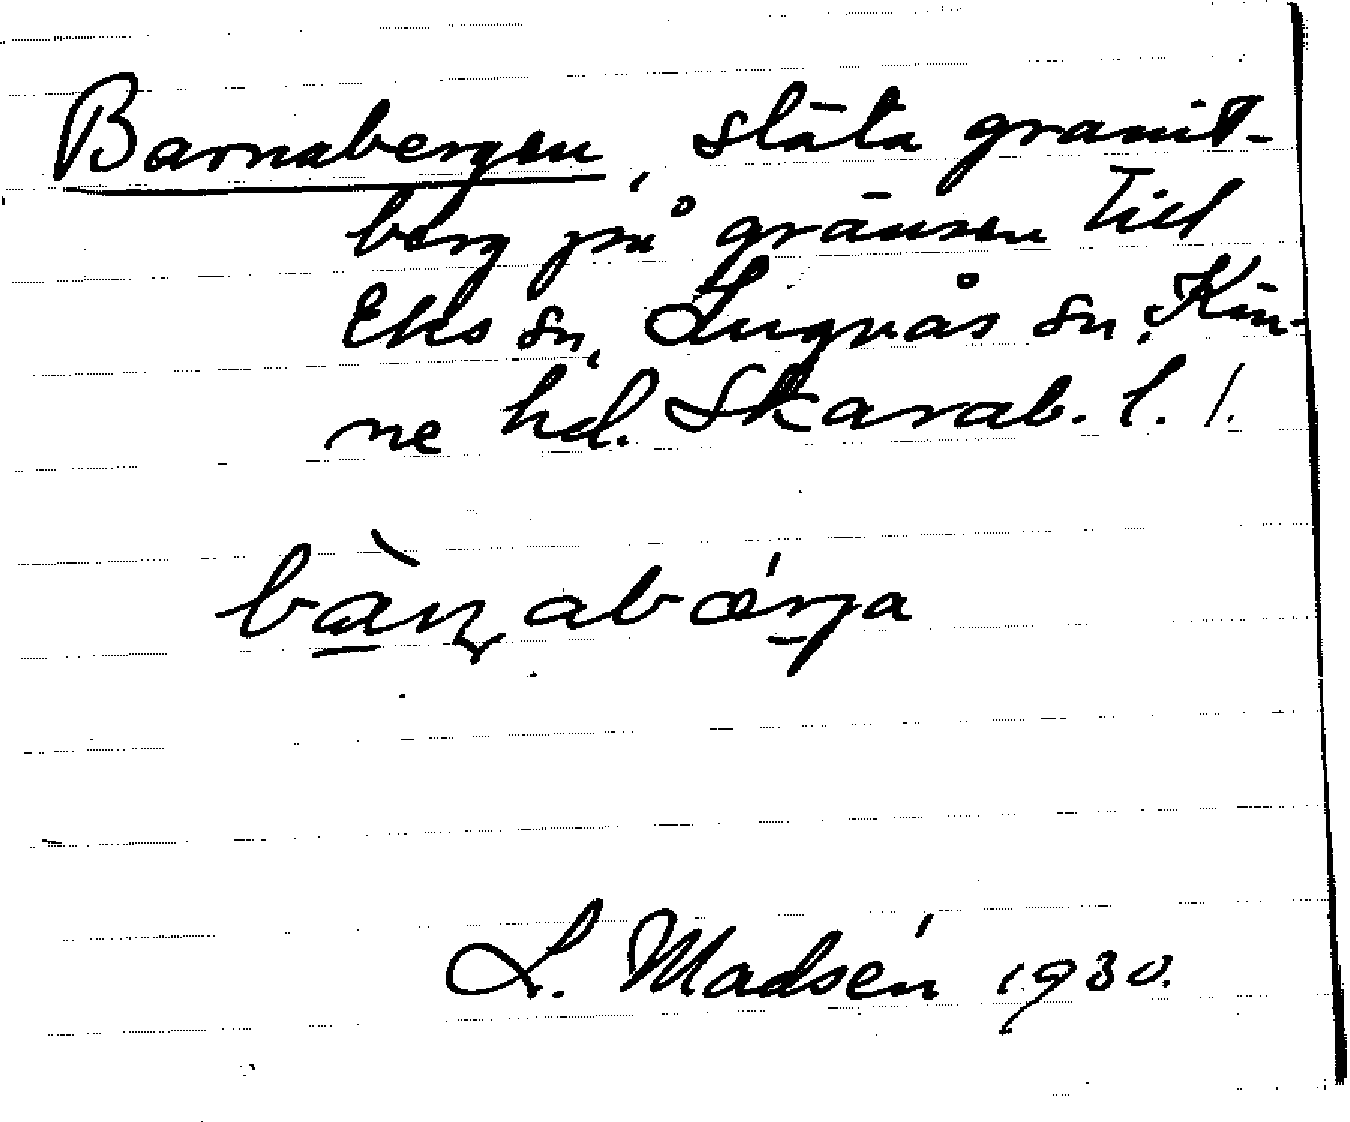 Barnabergen, släta granit-
berg på gränsen till
Eks sn, Lugnås sn, Kin-
ne hd. Skarab. l. /.
bàn̨abǽrja
L. Madsén 1930.